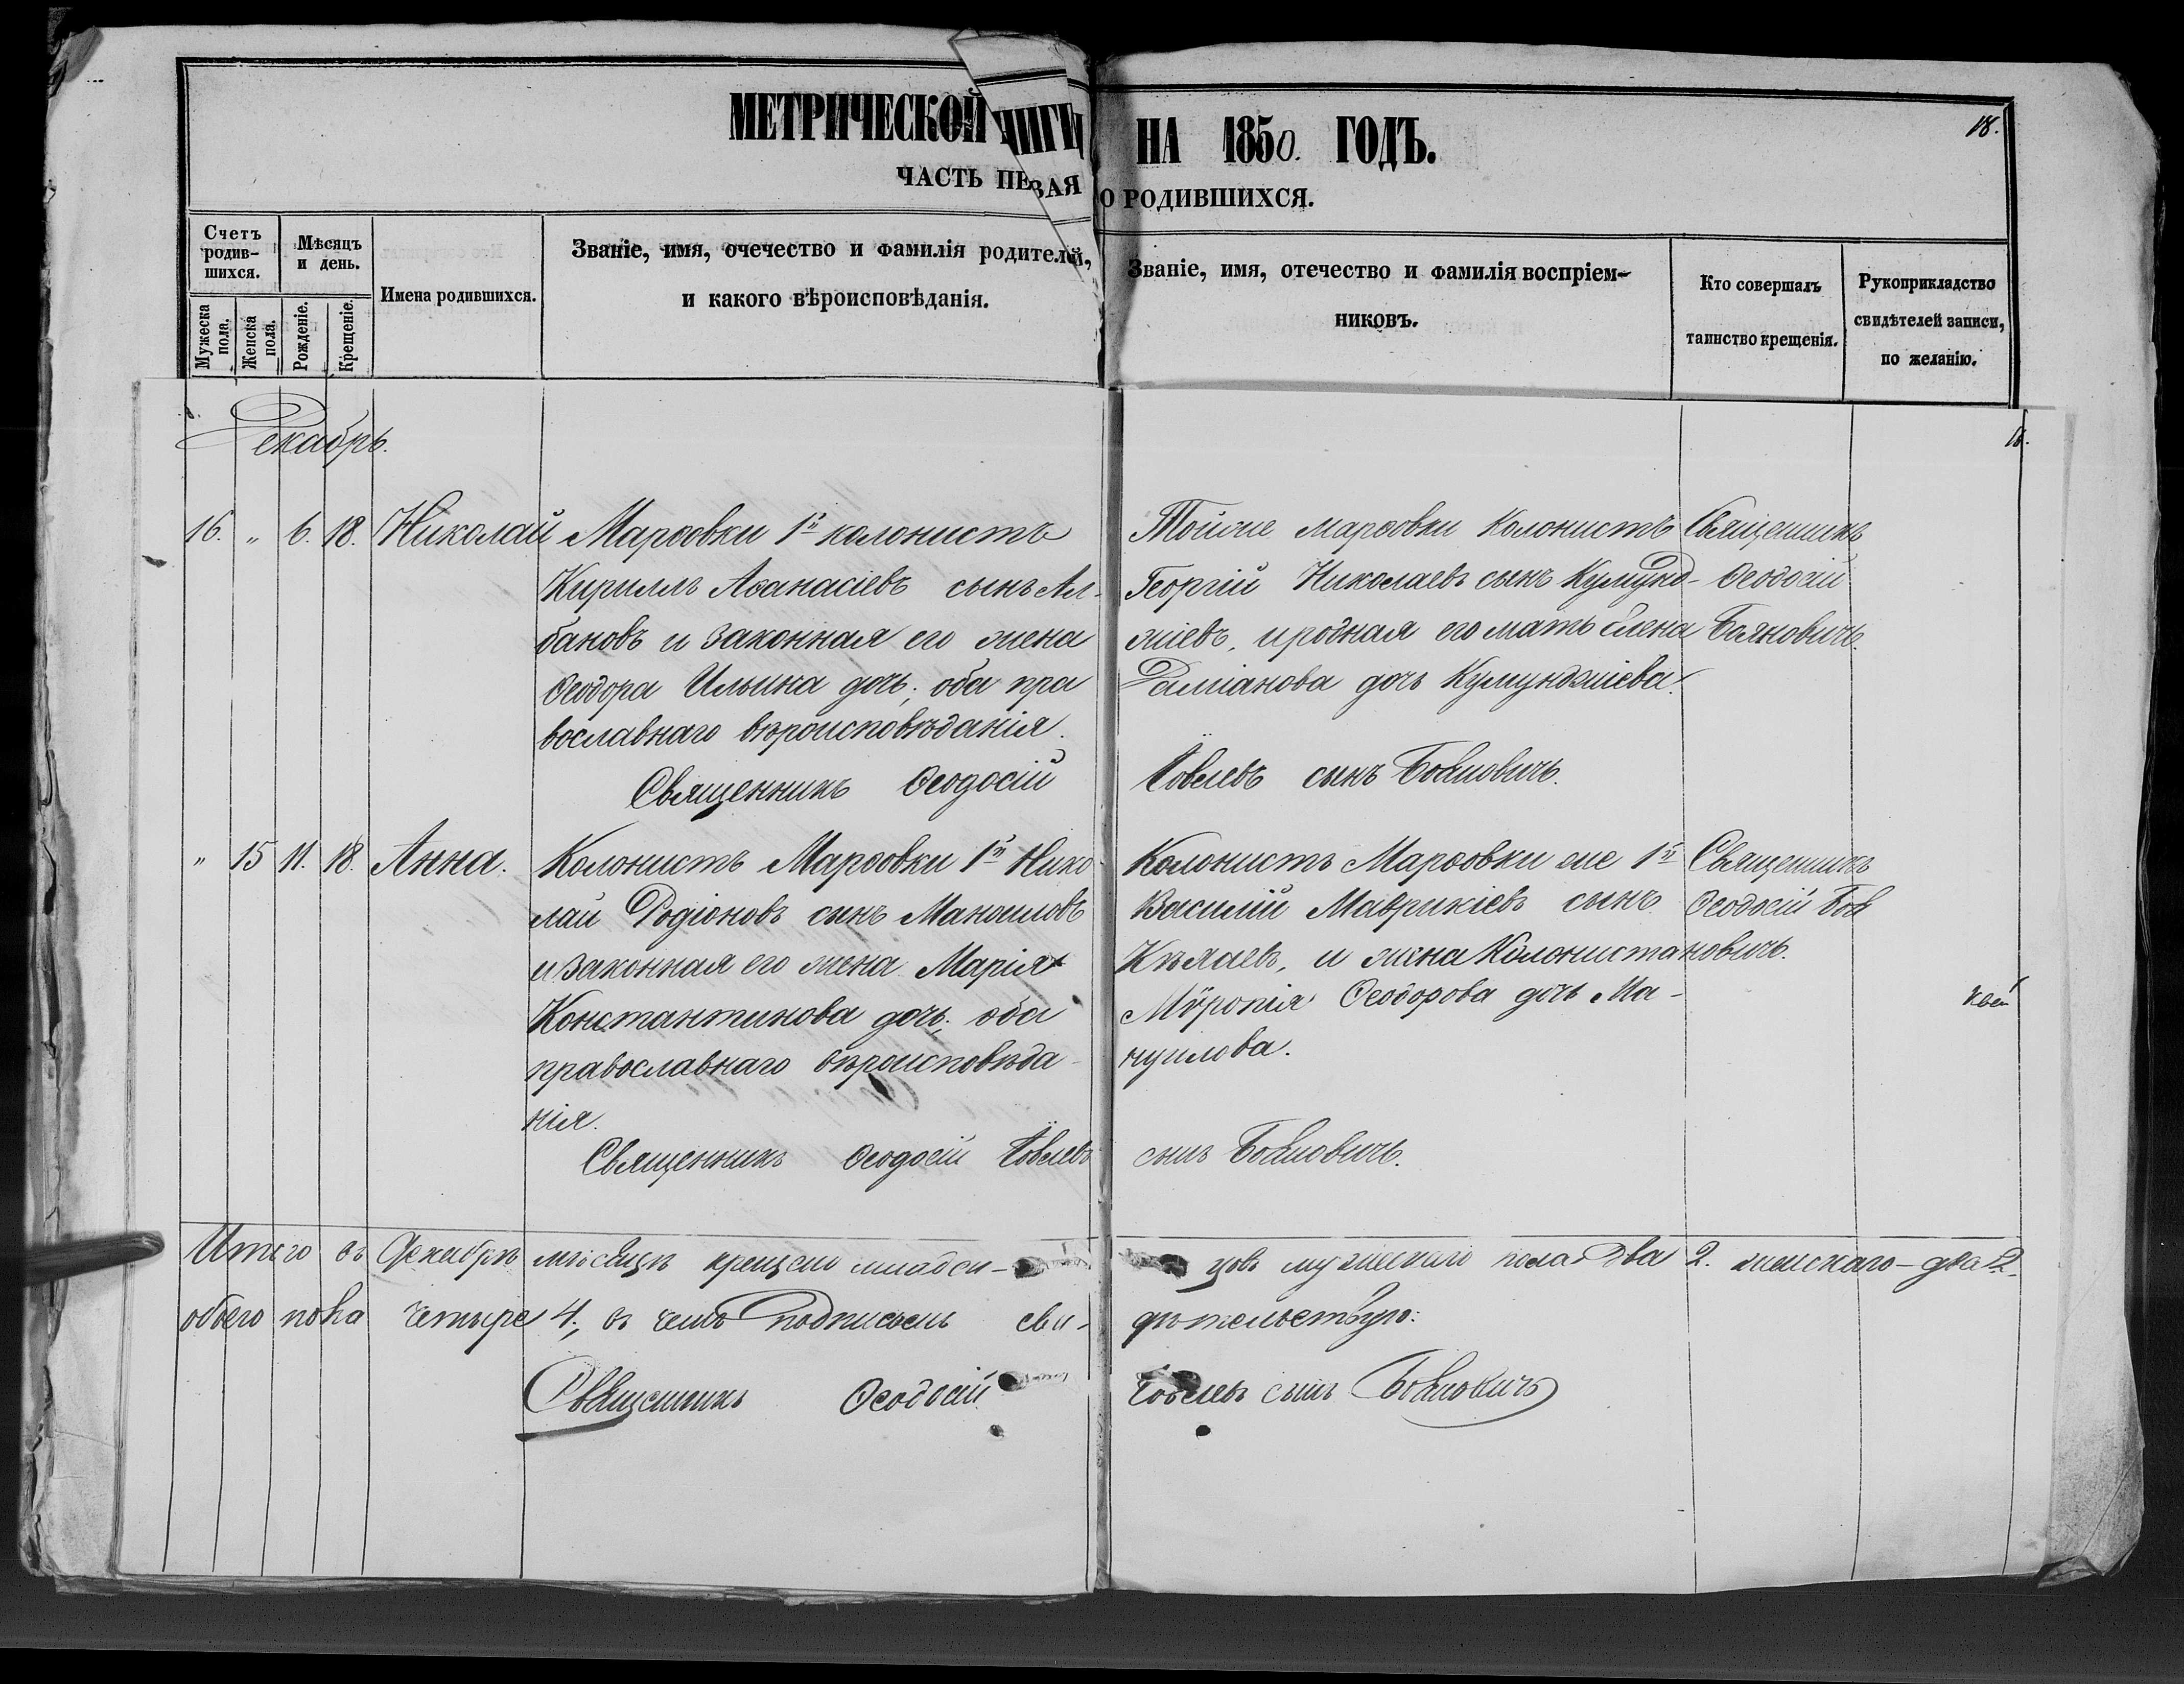 МЕТРИЧЕСКОЙ НИГИ НА 1850. ГОДЪ.
18.
ЧАСТЬ ПЕ ВАЯ О РОДИВШИХСЯ.
Счетъ родив-шихся.
Мужеска пола.
Женска пола.
Мѣсяцъ и день.
Рожденіе.
Крещеніе.
Имена родившихся.
Званіе, имя, очечество и фамилія родителей,
и какого вѣроисповѣданія.
Званіе, имя, отечество и фамилія воспріем-
никовъ.
Кто совершалъ
таинство крещенія.
Рукоприкладство
свидѣтелей записи,
по желанію.
Декабрь.
18.
16. „ 6. 18. Николай
Марѳовки 1й колонистъ
Кириллъ Аѳанасіевъ сынъ Ал-
бановъ и законная его жена
Ѳеодора Ильина дочь; оба пра
вославнаго вѣроисповѣданія.
Тойже Марѳовки Колонистъ
Георгій Николаевъ сынъ Кумунд-
жіевъ, и родная его мать Елена
Даміанова дочь Кумунджіева.
Священникъ
Ѳеодосій
Бояновичъ.
Священникъ Ѳеодосій Іовлевъ сынъ Бояновичъ.
„ 15 11. 18. Анна.
Колонистъ Марѳовки 1й Нико
лай Родіоновъ сынъ Маноиловъ
и законная его жена Марія
Константинова дочь; оба
православнаго вѣроисповѣда-
нія.
Колонистъ Марѳовки же 1й
Василій Маврикіевъ сынъ
и жена Колониста
Мѵропія Ѳеодорова дочь Ма-
нуилова.
Священникъ
Ѳеодосій Боя
новичъ.
Священникъ Ѳеодосій Іовлевъ сынъ Бояновичъ.
Итого въ Декабрѣ мѣсяцѣ крещено младен- цовъ мужескаго пола два 2. женскаго-два 2.
обоего пола четыре 4; въ чемъ подписомъ сви- дѣтельствую:
Священникъ Ѳеодосій Іовлевъ сынъ Бояновичъ